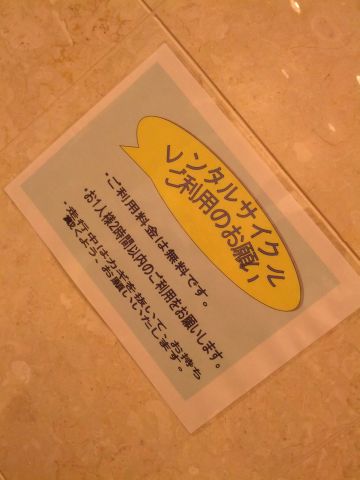 レンタルサイクル
ご利用のお願い
・ご利用料金は無料です。
・お1人様2時間以内のご利用をお願いします。
・走行中はカギを抜いて、お持ち
戴くよう、お願いいたします。